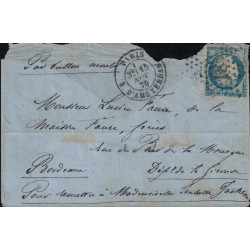 Par ballon monté
PARIS
R. D'AMSTERDAM
NOV.
70
Monsieur Lucien Faure, de la
Maison Faure, frères
rue du Pas de la
Bordeaux
Dépt de la Gironde
Pour remettre à Mademoiselle